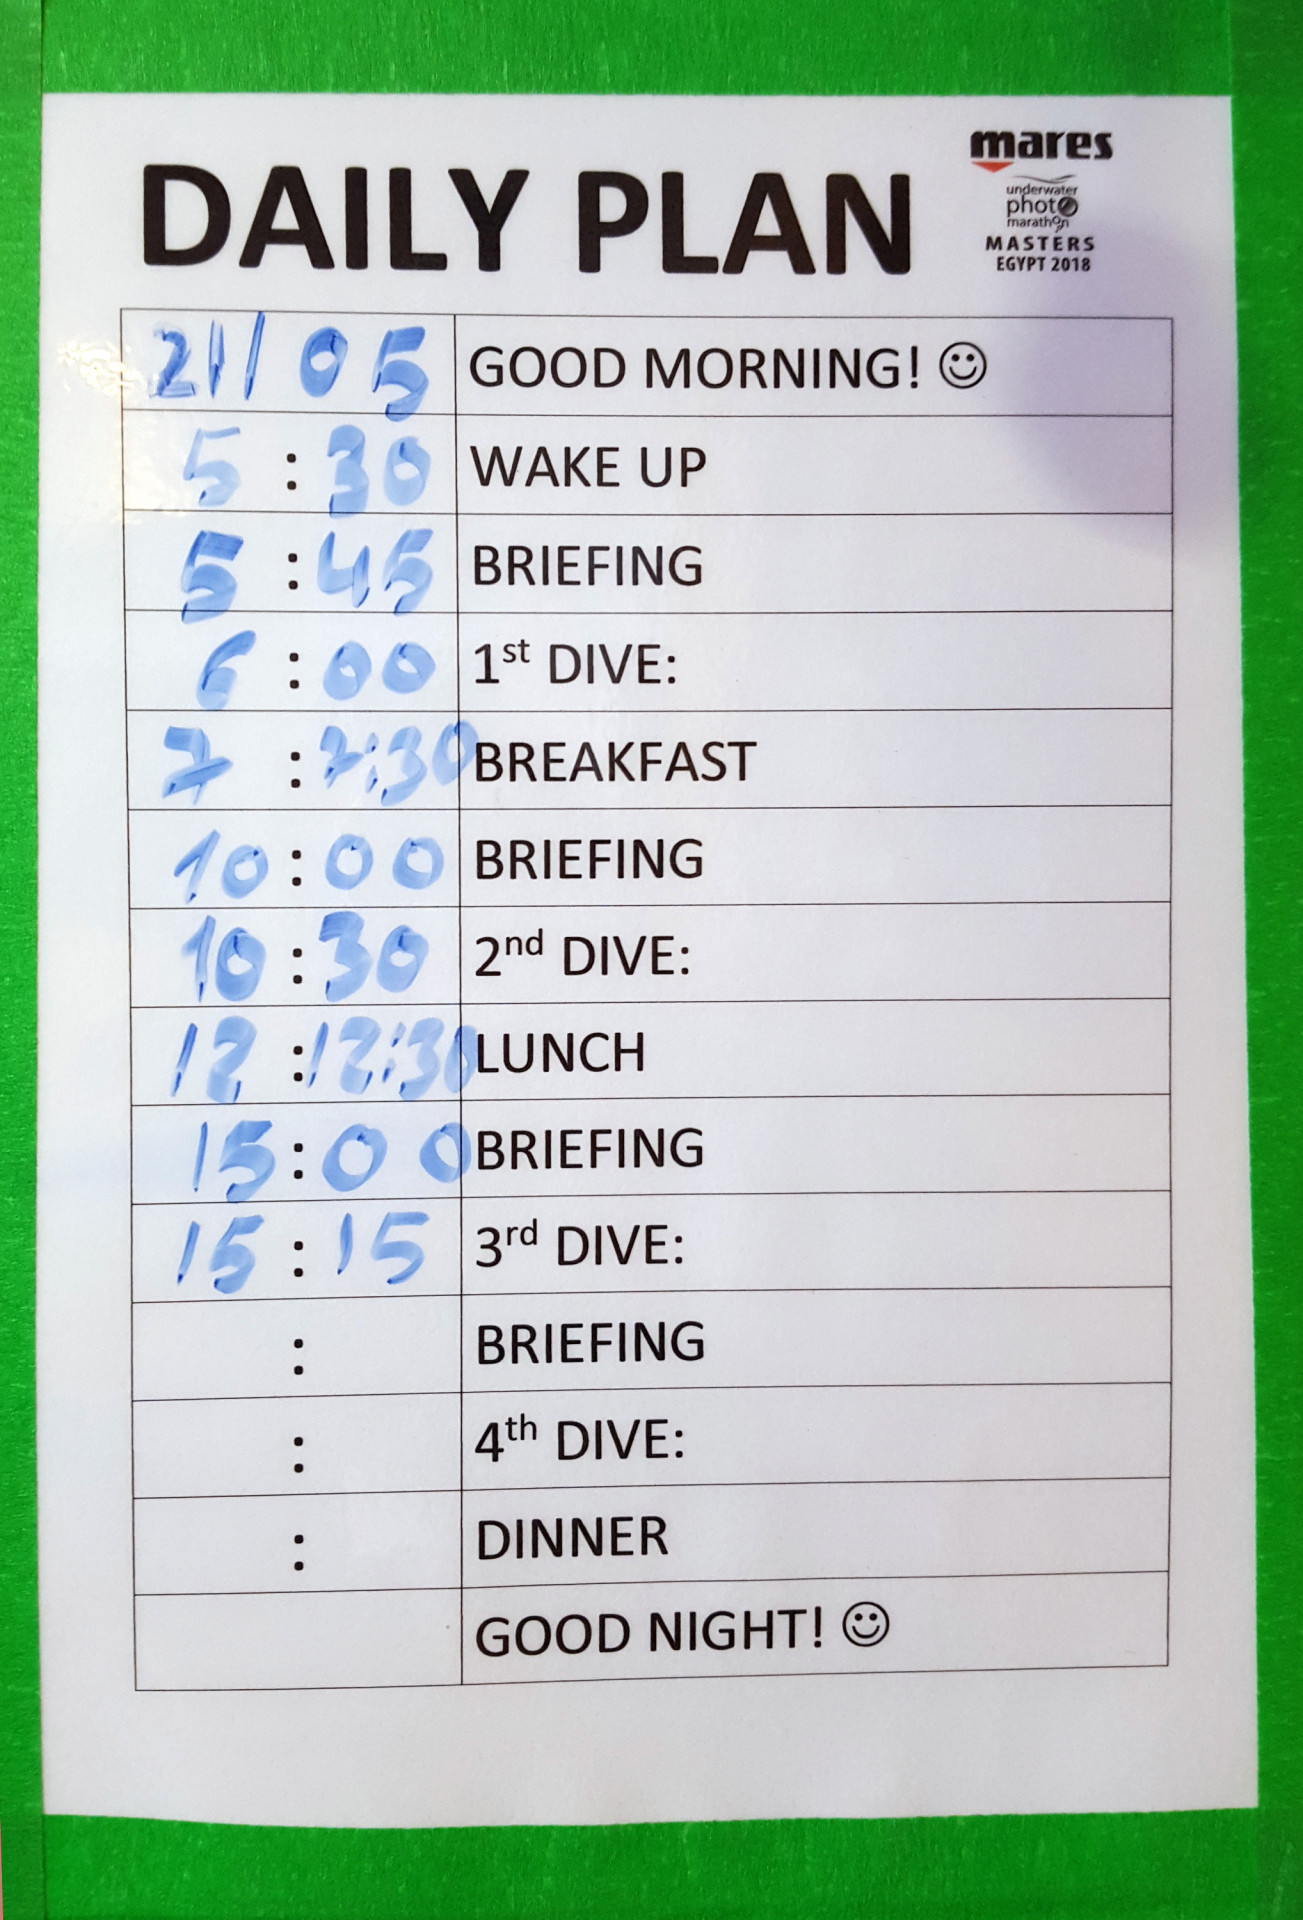 DAILY PLAN
mares
underwater
photo
marathon
MASTERS
EGYPT 2018
21/05 GOOD MORNING! ☺
5:30 WAKE UP
5:45 BRIEFING
6:00 1st DIVE:
7:7:30 BREAKFAST
10:00 BRIEFING
10:30 2nd DIVE:
12:12:30 LUNCH
15:00 BRIEFING
15:15 3rd DIVE:
: BRIEFING
: 4th DIVE:
: DINNER
GOOD NIGHT! ☺